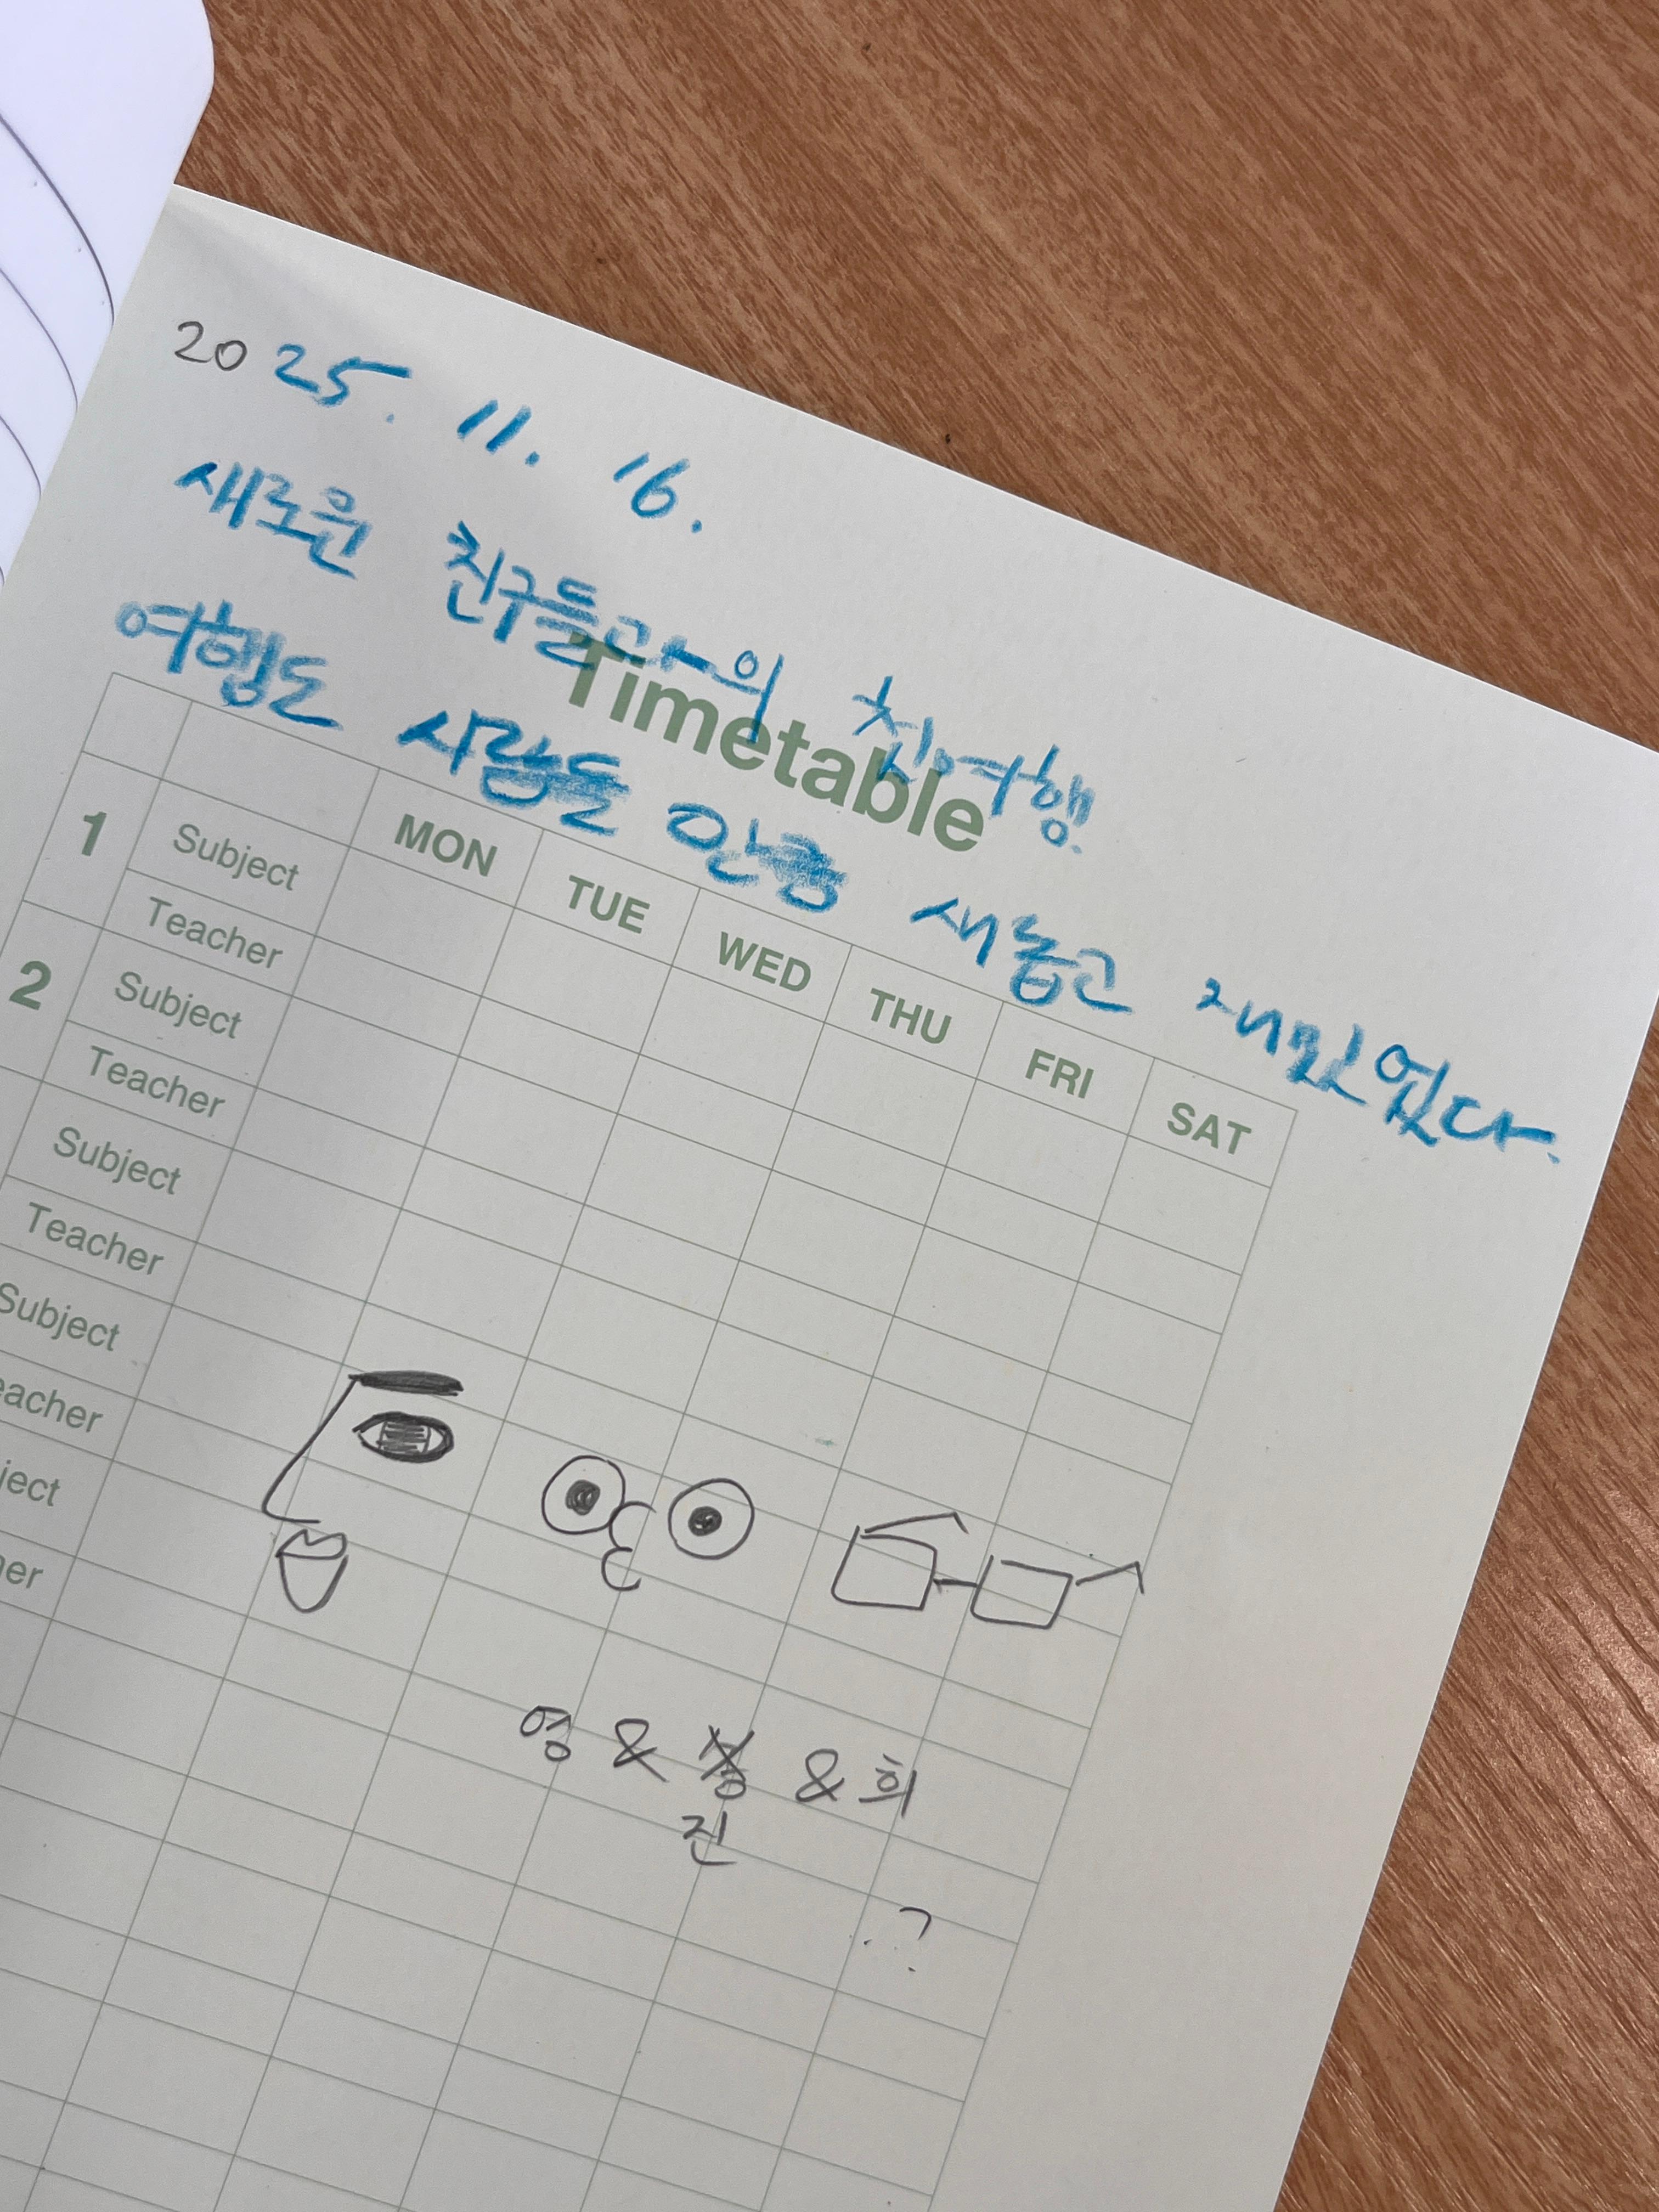 2025. 11. 16.
새로운 친구들과의 첫여행.
여행도 사람들 만남 새롭고 재밌었다.
Timetable
MON TUE WED THU FRI SAT
1 Subject
Teacher
2 Subject
Teacher
Subject
Teacher
Subject
eacher
ject
er
영 & & 희
진